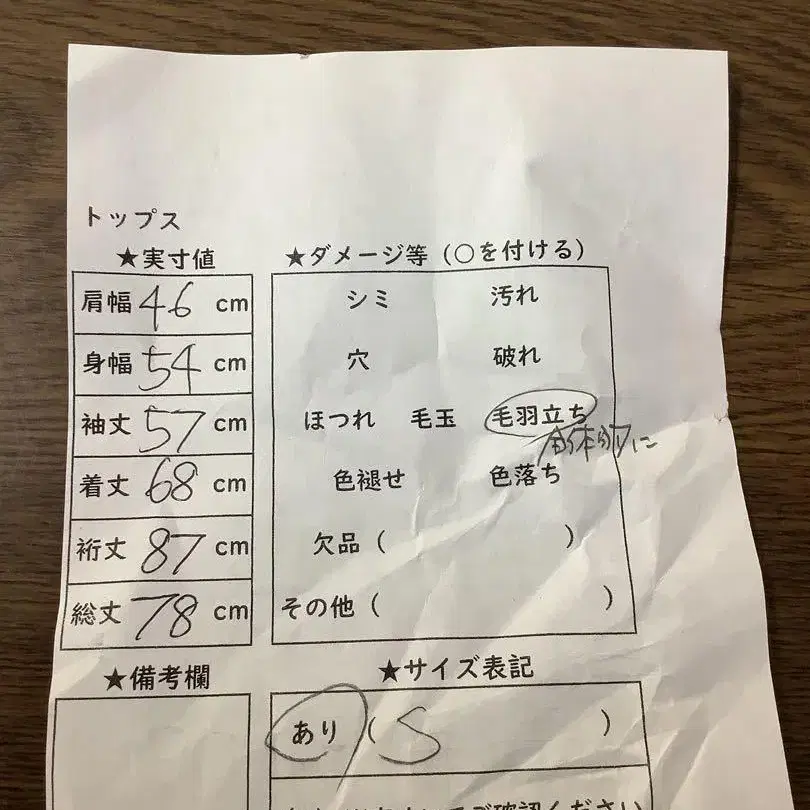 トップス
★実寸値
肩幅 46 cm
身幅 54 cm
袖丈 57 cm
着丈 68 cm
裄丈 87 cm
総丈 78 cm
★ダメージ等（○を付ける）
シミ 汚れ
穴 破れ
ほつれ 毛玉 毛羽立ち
全体的に
色褪せ 色落ち
欠品（ ）
その他（ ）
★備考欄
★サイズ表記
あり（S ）
ご確認ください